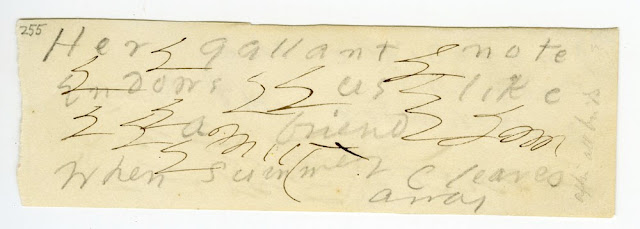 255
Her gallant note
Endows us like
a friend
when summer cleaves
away
after all birds